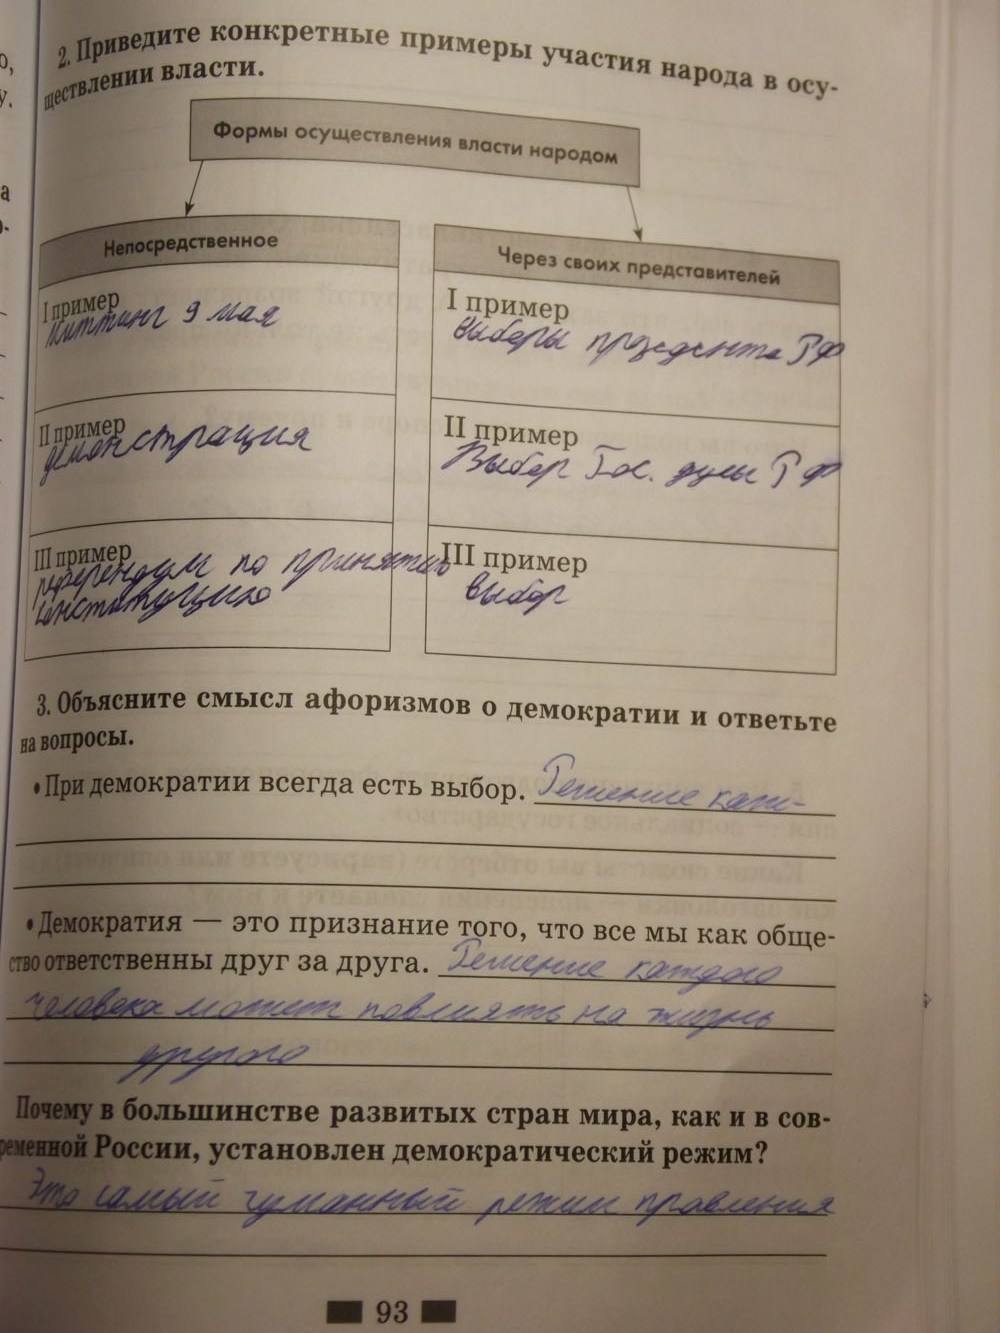 2. Приведите конкретные примеры участия народа в осу-
ществлении власти.
Формы осуществления власти народом
Непосредственное
I пример
Миттинг 9 мая
II пример
демонстрация
III пример
референдум по принятию
конституцию
Через своих представителей
I пример
Выборы президента РФ
II пример
Выбор Гос. думы РФ
III пример
выбор
3. Объясните смысл афоризмов о демократии и ответьте
на вопросы.
• При демократии всегда есть выбор. Решение каж-
• Демократия — это признание того, что все мы как обще-
ство ответственны друг за друга. Решение каждого
человека может повлиять на жизнь
другого
Почему в большинстве развитых стран мира, как и в сов-
ременной России, установлен демократический режим?
Это самый гуманный режим правления
93